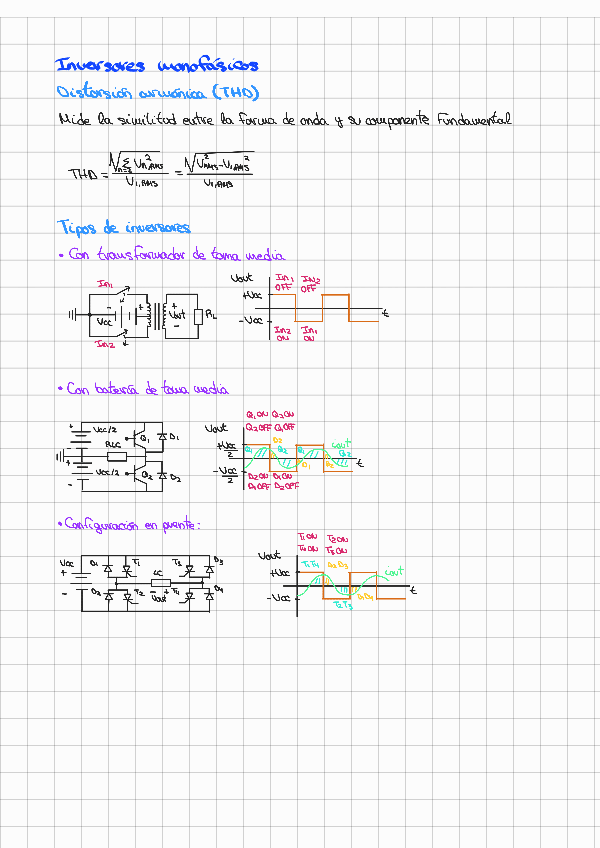 Inversores monofásicos
Distorsión armónica (THD)
Mide la similitud entre la forma de onda y su componente Fundamental
THD = √(∑ Vn,RMS²) / V1,RMS = √(VRMS² - V1,RMS²) / V1,RMS
Tipos de inversores
• Con transformador de toma media
In1
Vcc
Vout
RL
In2
Vout In1 In2
OFF OFF
+Vcc
-Vcc
t
In2 In1
ON ON
• Con batería de toma media
Vcc/2
RLC
Q1
D1
Vcc/2
Q2
D2
Vout
Q1 ON Q2 ON
Q2 OFF Q1 OFF
+Vcc/2
-Vcc/2
Q1 D2 Q2 Q1 iout
D1 D2 Q2
t
D2 ON D1 ON
D1 OFF D2 OFF
• Configuración en puente:
Vcc
D1 T1 T3 D3
LC
D2 T2 Vout T4 D4
Vout
T1 ON T2 ON
T4 ON T3 ON
+Vcc
-Vcc
T1 T4 D2 D3
iout
t
D1 D4
T2 T3